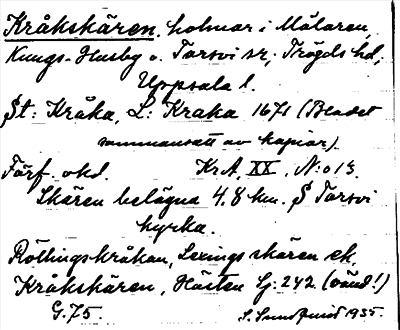 Kråkskären, holmar i Mälaren,
Kungs-Husby o. Torsvi sr, Trögds hd,
Uppsala l.
St: Kråka, L: Kraka 1671 (Bladet
sammansatt av kopior).
Förf. okd. KrA XX, N:o 13.
Skären belägna 4.8 km. S Torsvi
kyrka.
Rötlingskråkan, Lexingsskären ek.
Kråkskären, Hästen G:242. (vänd!)
G.75. S. Sundquist 1935.